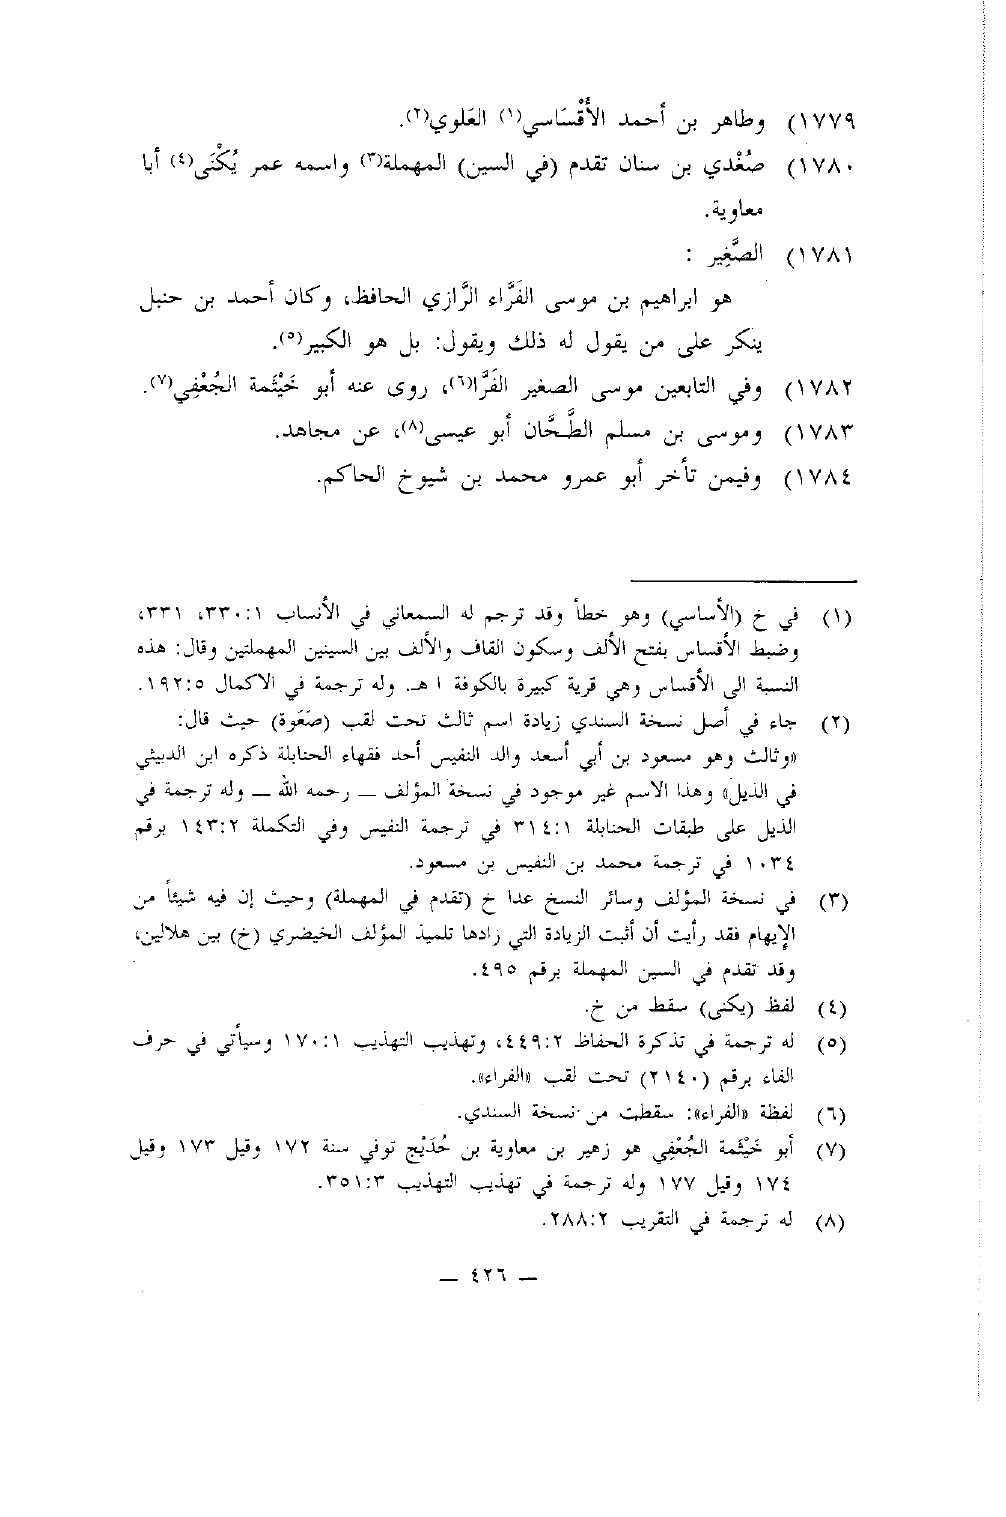 ١٧٧٩) وطاهر بن أحمد الأَقْسَاسي(١) العَلوي(٢).
١٧٨٠) صُغْدي بن سنان تقدم (في السين) المهملة(٣) واسمه عمر يُكْنَى(٤) أبا
معاوية.
١٧٨١) الصَّغِير :
هو ابراهيم بن موسى الفَرَّاء الرَّازي الحافظ، وكان أحمد بن حنبل
ينكر على من يقول له ذلك ويقول: بل هو الكبير(٥).
١٧٨٢) وفي التابعين موسى الصغير الفَرَّا(٦)، روى عنه أبو خَيْثَمة الجُعْفِي(٧).
١٧٨٣) وموسى بن مسلم الطَّحَّان أبو عيسى(٨)، عن مجاهد.
١٧٨٤) وفيمن تأخر أبو عمرو محمد بن شيوخ الحاكم.
(١) في خ (الأساسي) وهو خطأ وقد ترجم له السمعاني في الأنساب ٣٣٠:١، ٣٣١،
وضبط الأقساس بفتح الألف وسكون القاف والألف بين السينين المهملتين وقال: هذه
النسبة الى الأقساس وهي قرية كبيرة بالكوفة ا هـ. وله ترجمة في الاكمال ١٩٢:٥.
(٢) جاء في أصل نسخة السندي زيادة اسم ثالث تحت لقب (صَعَوة) حيث قال:
«وثالث وهو مسعود بن أبي أسعد والد النفيس أحد فقهاء الحنابلة ذكره ابن الدبيثي
في الذيل» وهذا الاسم غير موجود في نسخة المؤلف ــ رحمه الله ــ وله ترجمة في
الذيل على طبقات الحنابلة ٣١٤:١ في ترجمة النفيس وفي التكملة ١٤٣:٢ برقم
١٠٣٤ في ترجمة محمد بن النفيس بن مسعود.
(٣) في نسخة المؤلف وسائر النسخ عدا خ (تقدم في المهملة) وحيث إن فيه شيئاً من
الإيهام فقد رأيت أن أثبت الزيادة التي زادها تلميذ المؤلف الخيضري (خ) بين هلالين،
وقد تقدم في السين المهملة برقم ٤٩٥.
(٤) لفظ (يكنى) سقط من خ.
(٥) له ترجمة في تذكرة الحفاظ ٤٤٩:٢، وتهذيب التهذيب ١٧٠:١ وسيأتي في حرف
الفاء برقم (٢١٤٠) تحت لقب «الفراء».
(٦) لفظة «الفراء»: سقطت من نسخة السندي.
(٧) أبو خَيْثَمة الجُعْفِي هو زهير بن معاوية بن حُدَيْج توفي سنة ١٧٢ وقيل ١٧٣ وقيل
١٧٤ وقيل ١٧٧ وله ترجمة في تهذيب التهذيب ٣٥١:٣.
(٨) له ترجمة في التقريب ٢٨٨:٢.
ــ ٤٢٦ ــ